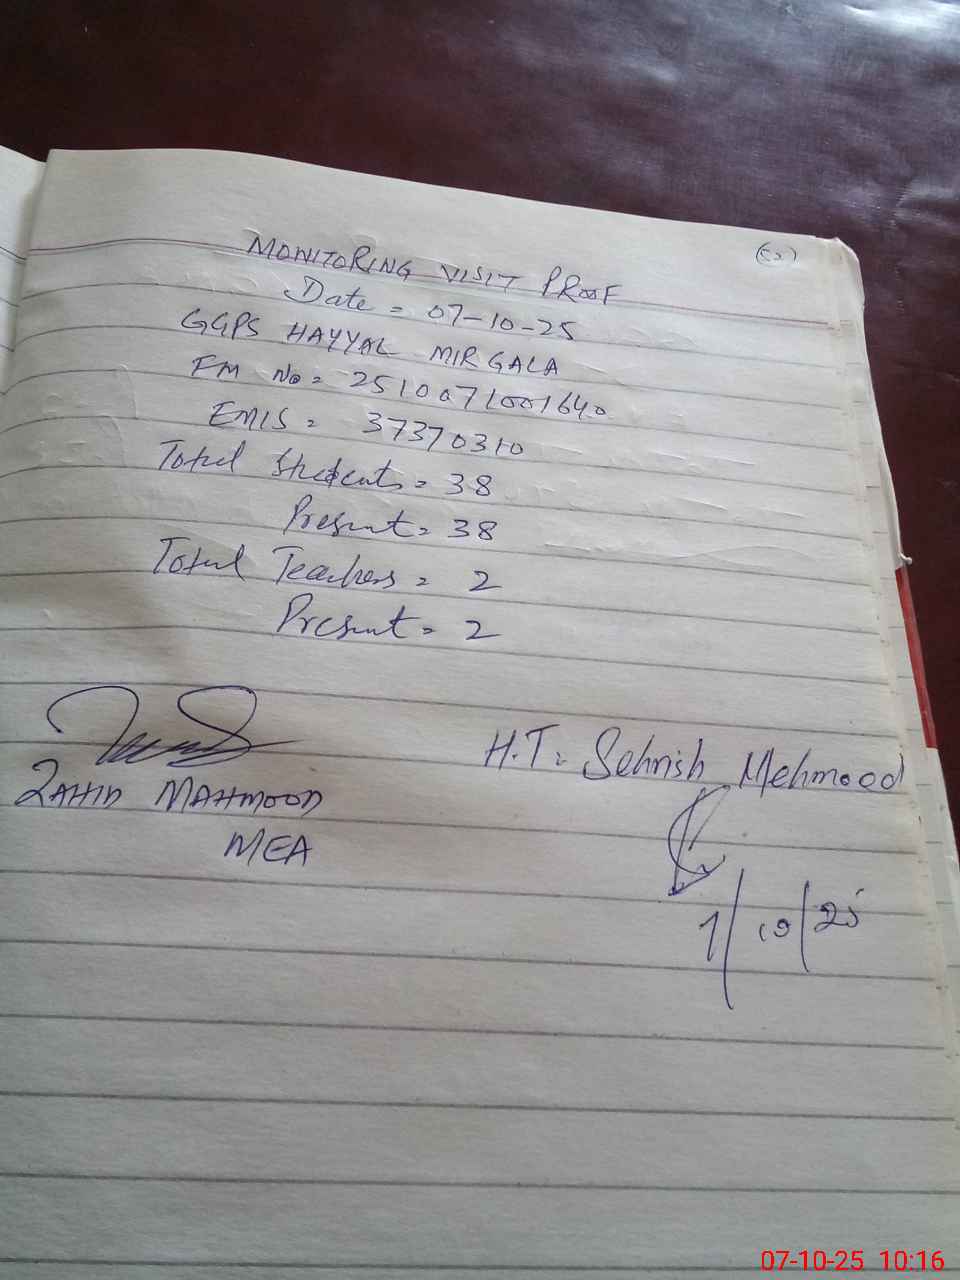 (52)
MONITORING VISIT PROOF
Date = 07-10-25
GGPS HAYYAL MIRGALA
FM No = 2510071001640
EMIS = 37370310
Total Students = 38
Present = 38
Total Teachers = 2
Present = 2
H.T: Sehrish Mehmood
ZAHID MAHMOOD
MEA
7/10/25
07-10-25 10:16